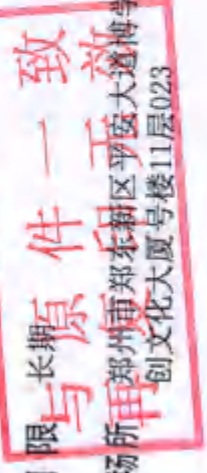 限 长期
场所 郑州市郑东新区平安大道博学
创文化大厦 号楼11层023
与原件一致
再复印无效